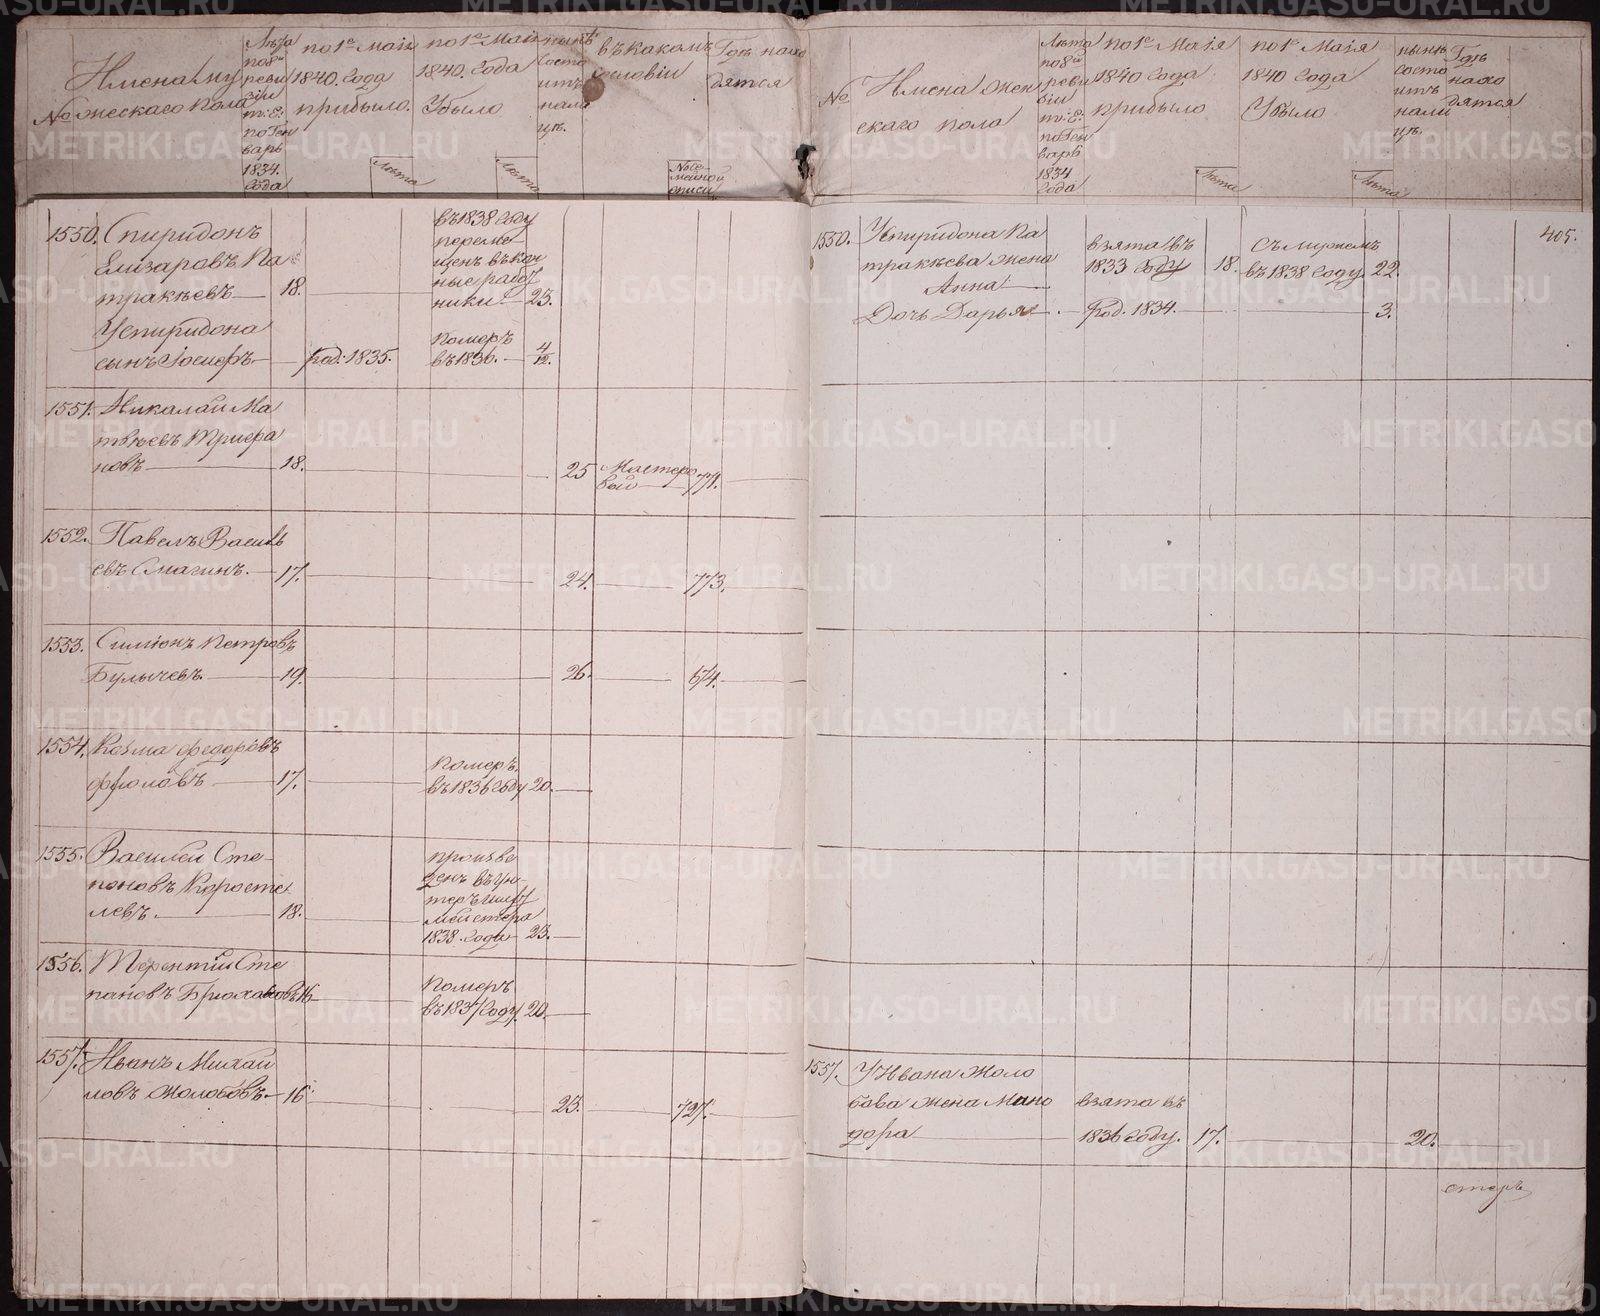 №
Имена му
жескаго пола
Лѣта
по 8й
реви
зiи
т: е:
по Ген
варь
1834.
года
по 1е Маiя
1840. года
прибыло.
Лѣта
по 1е Маiя
1840. года
Убыло
Лѣта
нынѣ
состо
итъ
нали
цѣ.
въ какомъ
сословiи
№ се
мейной
описи
Гдѣ нахо
дятся
1550. Спиридонъ
Елизаровъ Па
тракѣевъ 18.
въ 1838 году
переме
щенъ въ кон
ные работ
ники 23.
У Спиридона
сынъ Iосифъ Род: 1835.
Померъ
въ 1836. 4/12.
1551. Николай Ма
твѣевъ Трифа
новъ 18. 25 Мастеро
вой 771.
1552. Павелъ Василь
евъ Смагинъ. 17. 24. 773.
1553. Симiонъ Петровъ
Булычевъ 19. 26. 674.
1554. Козма Федоровъ
Фроловъ 17.
Померъ
въ 1836 году 20.
1555. Василей Сте-
пановъ Коросте
левъ. 18.
произве
денъ въ Ун-
теръ
мейстера
1838. года 23.
1556. Терентiй Сте
пановъ Брюхановъ 16
Померъ
въ 1837 году. 20.
1557. Иванъ Михай
ловъ Жолобовъ 16. 23. 727.
№
Имена жен
скаго пола
Лѣта
по 8й
реви
зiи
т: е:
по Ген
варь
1834
года
по 1е Маiя
1840 года
прибыло
Лѣта
по 1е Маiя
1840 года
Убыло
Лѣта
нынѣ
состо
итъ
нали
цѣ.
Гдѣ
нахо
дятся
405.
1550. У Спиридона Па
тракѣева жена
Анна
взята въ
1833 году 18.
съ мужемъ
въ 1838 году. 22.
Дочь Дарья Род. 1834. 3.
1557. У Ивана Жоло
бова жена Мино
дора
взята въ
1836 году. 17. 20.
METRIKI.GASO-URAL.RU